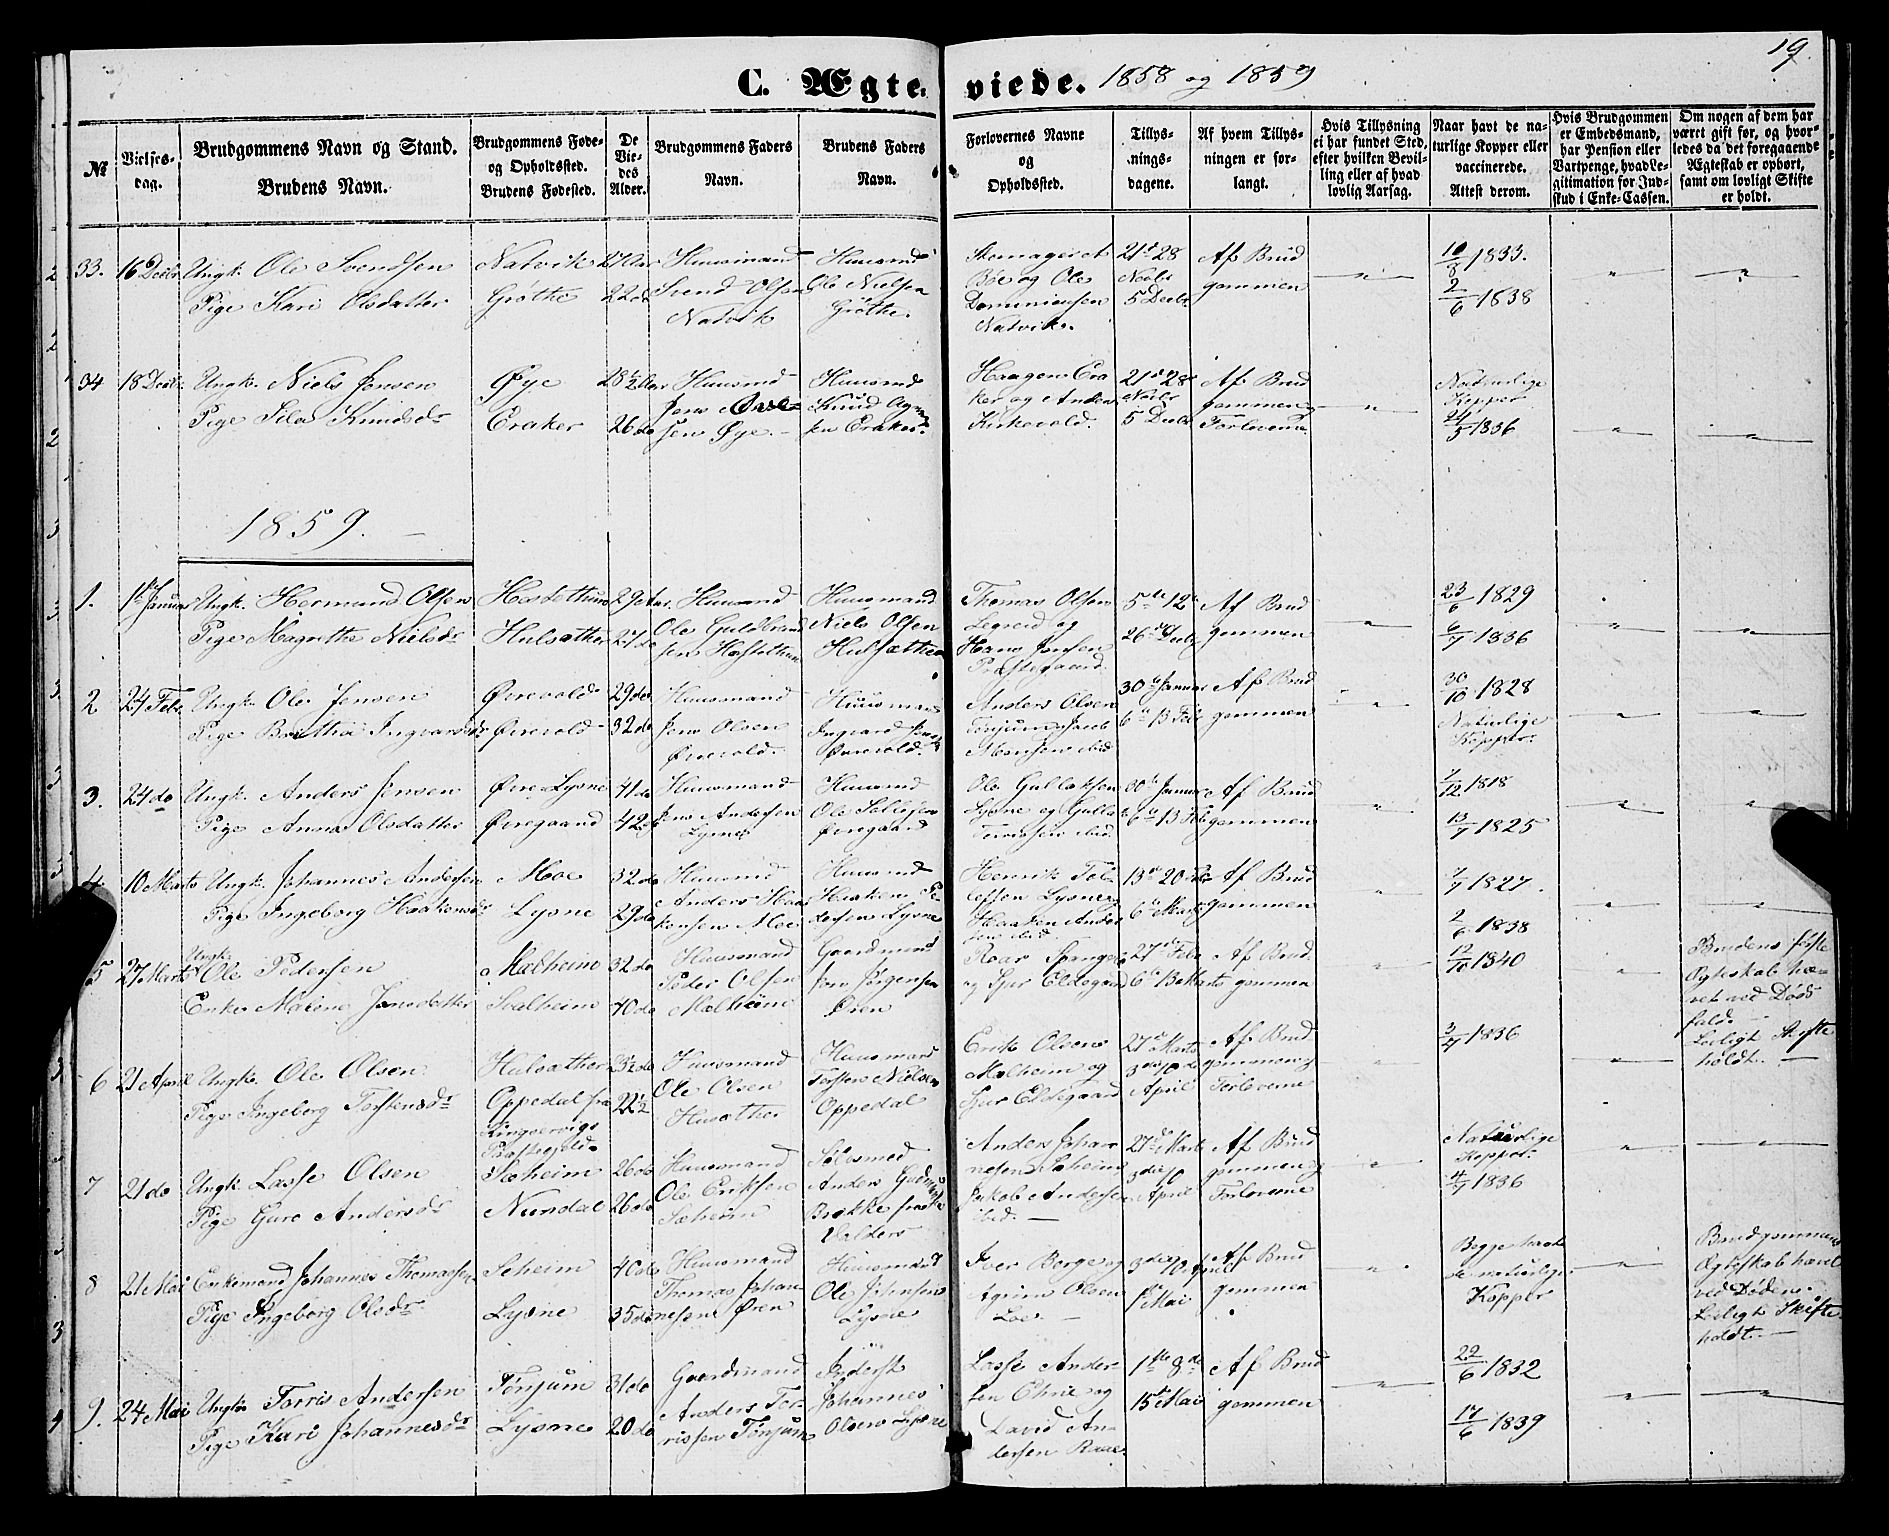 19.
C. Ægteviede. 1858 og 1859
№
Vielses-
dag.
Brudgommens Navn og Stand.
Brudens Navn.
Brudgommens Føde-
og Opholdssted.
Brudens Fødested.
De
Vie-
des
Alder.
Brudgommens Faders
Navn.
Brudens Faders
Navn.
Forlovernes Navne
og
Opholdssted.
Tillys-
nings-
dagene.
Af hvem Tillys-
ningen er for-
langt.
Hvis Tillysning
ei har fundet Sted,
efter hvilken Bevil-
ling eller af hvad
lovlig Aarsag.
Naar havt de na-
turlige Kopper eller
vaccinerede.
Attest derom.
Hvis Brudgommen
er Embedsmand,
har Pension eller
Vartpenge, hvad Le-
gitimation for Ind-
skud i Enke-Cassen.
Om nogen af dem har
været gift før, og hvor-
ledes da det foregaaende
Ægteskab er ophørt,
samt om lovligt Skifte
er holdt.
33.
16 Decbr
Ungk. Ole Svendsen
Pige Kari Olsdatter
Natvik
Grøthe
27 Aar
22 do
Huusmand
Svend Olsen
Natvik
Huusmd
Ole Nielsen
Grøthe.
Bøe og Ole
Natvik.
21de 28
Novbr
5 Decbr
Af Brud
gommen
10/8 1833.
2/6 1838
34
18 Decbr
Ungk. Niels Jensen
Pige Sila Knudsdr
Øye
Eraker
28 1/2 Aar
26 do
Huusmd
Jens
sen Øye.
Huusmd
Knud
sen Eraker.
Haagen Era
ker og Anders
Kirkevold.
21de 28
Novbr
5 Decbr
Af Brud
gommen og
Forloverne
Naturlige
Kopper
24/5 1836
1859.
1.
1ste Januar
Ungk. Hermund Olsen
Pige Magrethe Nielsdr
Hestethun
Hulsather
29 Aar.
27 do
Huusmand
Ole Guldbrand
sen Hestethun
Huusmand
Niels Olsen
Hulsæther
Thomas Olsen
Legreid og
Hans Jensen
Præstegaard.
5te 12te
26de Decbr
Af Brud
gommen
23/6 1829
6/7 1836
2
24 Febr
Ungk. Ole Jensen
Pige Brithe Ingvarsdr
Ørevold
Ørevold
29 do
32 do
Huusmand
Jens Olsen
Ørevold.
Huusmand
Ingvard Jensen
Ørevold.
Anders Olsen
Tønjum Jacob
Monsen ibid.
30te Januar
6te 13 Feb
Af Brud
gommen
30/10 1828
Naturlige
Kopper.
3.
24 do
Ungk. Anders Jensen
Pige Anna Olsdatter
Øvre Lysne
Øvregaard
41 do
42 do
Huusmand
Jens Andersen
Lysne
Huusmd
Ole
Øvregaard
Ole Gullaksen
Lysne og Gullak
ibid.
30te Januar
6te 13 Feb
Af Brud
gommen
7/12 1818
13/7 1825
4.
10 Marts
Ungk. Johannes Andersen
Pige Ingeborg Haakensdr
Moe
Lysne
32 do
29 do
Huusmd
Anders Haa
konsen Moe
Huusmd
Haaken Pe
dersen Lysne
Henrik Tol
lefsen Lysne og
Haaken Ander
sen ibid.
13de 20 Febr
6te Marts
Af Brud
gommen
7/7 1827.
2/6 1838
5
27 Marts
Ungk.
Ole Pedersen
Enke Marine Jensdatter
Mælheim
Svalheim
32 do
40 do
Huusmand
Peder Olsen
Mælheim
Gaardmand
Jens Jørgensen
Øren
Roar Spange
og Sjur Eldegaard
27de Febr
6te 13 Marts
Af Brud
gommen
12/10 1840
Brudens første
Ægteskab hæ-
vet ved Døds
fald.
Lovligt Skifte
holdt.
6
21 April
Ungk. Ole Olsen
Pige Ingeborg Torstensdr
Hulsather
Oppedal fra
Kingservigs
Præstegjeld
33 1/2 do
22 1/2
Huusmand
Ole Olsen
Husather
Huusmand
Torsten Nielsen
Oppedal
Erik Olsen
Mælheim og
Sjur Eldegaard
27de Marts
3die 10de
April
Af Brud
gommen og
Forloverne
3/7 1836
7
21 do
Ungk. Lasse Olsen
Pige Guro Andersdr
Sæheim
Nundal
26 do
26 do
Huusmand
Ole Eriksen
Sæheim
Sølvsmed
Anders
Brække fra
Valders
Anders Johan
nesen Sæheim
Jakob Andersen
ibid.
27de Marts
3die 10
April
Af Brud
gommen og
Forloverne
Naturlige
Kopper
4/7 1836
8
21 Mai
Enkemand Johannes Thomassen
Pige Ingeborg Olsdr
Seheim
Lysne
40 do
35 do
Huusmand
Thomas Johan
nesen Øren
Huusmand
Ole Johnsen
Lysne
Iver Borge og
Agrim Olsen
Loe.
3die 10 April
1ste Mai
Af Brud
gommen
Begge havt
de naturlige
Kopper
Brudgommens
Ægteskab hævet
ved Døden.
Lovligt Skifte
holdt.
9.
24 Mai
Ungk. Torris Andersen
Pige Kari Johannesdr
Tønjum
Lysne
31 do
20 do
Gaardmand
Anders Tor-
rissen Tønjum
Johannes
Olsen Lysne
Lasse Ander-
sen Ehrie og
David An-
dersen Raae.
1ste 8de
15de Mai
Af Brud
gommen
22/6 1832
17/6 1839